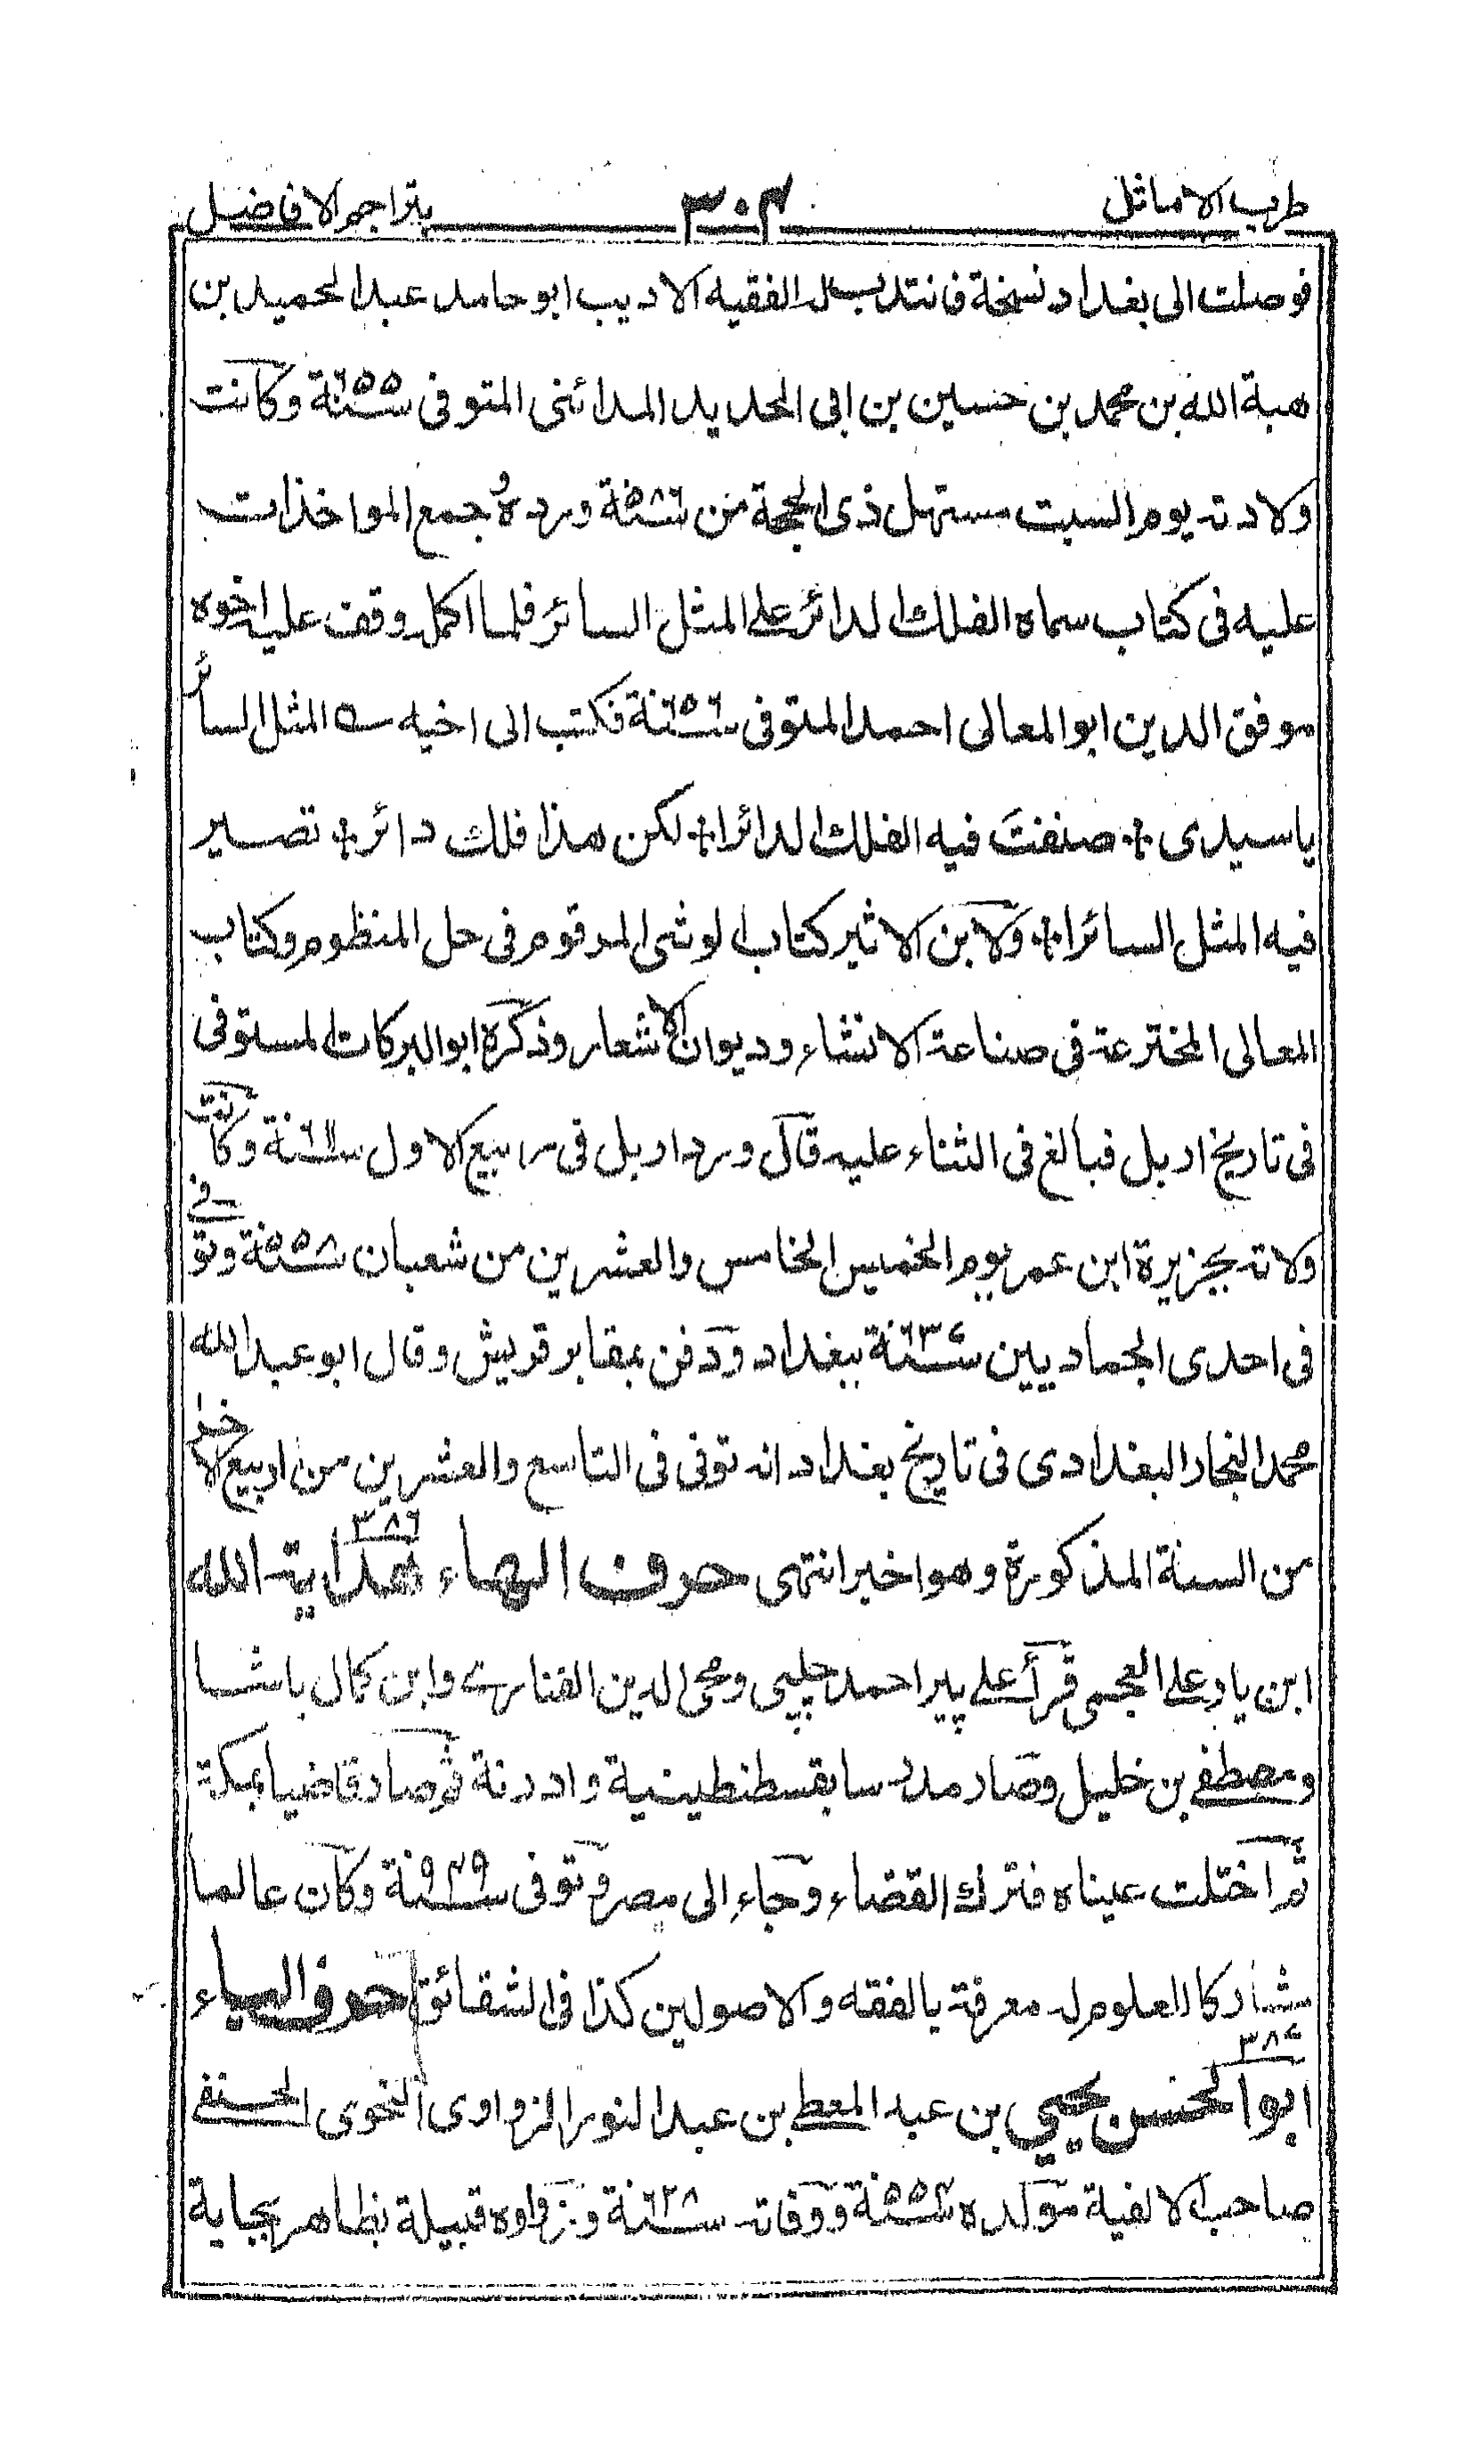 طرب الاماثل ٣٠٤ بتراجم الافاضل
فوصلت الى بغداد نسخة فانتدب له الفقيه الاديب ابو حامد عبد الحميد بن
هبة الله بن محمد بن حسين بن ابى الحديد المدائنى المتوفى سنة ٦٥٥ وكانت
ولادته يوم السبت مستهل ذى الحجة من سنة ٥٨٦ ورده وجمع المواخذات
عليه فى كتاب سماه الفلك الدائر على المثل السائر فلما اكمل وقف عليه اخوه
موفق الدين ابو المعالى احمد المتوفى سنة ٦٥٦ فكتب الى اخيه ؎ المثل السائر
ياسيدى ÷ صنفت فيه الفلك الدائرا ÷ لكن هذا فلك دائر ÷ تصير
فيه المثل السائرا ÷ ولابن الاثير كتاب الوشى المرقوم فى حل المنظوم وكتاب
المعالى المخترعة فى صناعة الانشاء وديوان الاشعار وذكره ابو البركات المستوفى
فى تاريخ اربل فبالغ فى الثناء عليه قال ورد اربل فى ربيع الاول سنة ٦١١ وكانت
ولاته بجزيرة ابن عمر يوم الخميس الخامس والعشرين من شعبان سنة ٥٥٨ وتوفى
فى احدى الجماديين سنة ٦٣٧ ببغداد ودفن بمقابر قريش وقال ابو عبد الله
محمد النجار البغدادى فى تاريخ بغداد انه توفى فى التاسع والعشرين من ربيع الاخر
من السنة المذكورة وهو اخير انتهى حرف الهاء ٣٨٦ هداية الله
ابن يار على العجمى قرأ على پير احمد چلپى ومحى الدين الفنارى وابن كمال باشا
ومصطفى بن خليل وصار مدرسا بقسطنطينية وادرنة ثم صار قاضيا بمكة
ثم اختلت عيناه فترك القضاء وجاء الى مصر وتوفى سنة ٩٤٩ وكان عالما
مشاركا العلوم له معرفة بالفقه والاصولين كذا فى الشقائق حرف الياء
٣٨٧ ابو الحسن يحيى بن عبد المعطى بن عبد النور الزواوى النحوى الحنفى
صاحب الالفية مولده سنة ٥٥٤ ووفاته سنة ٦٢٨ وزواوه قبيلة بظاهر بجاية